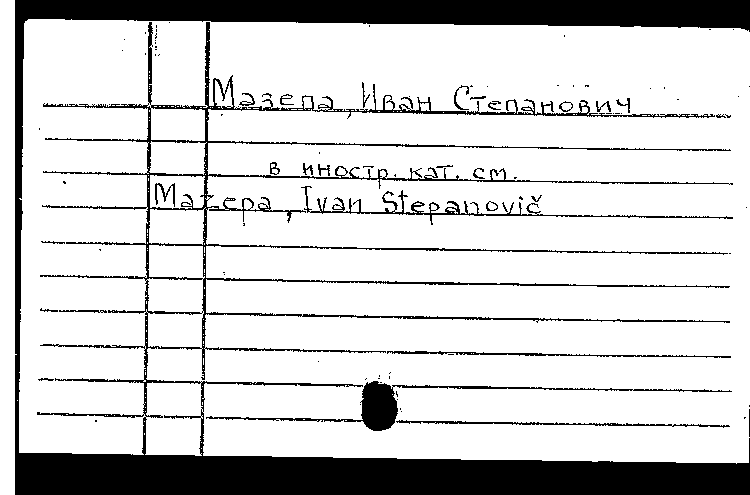 Мазепа, Иван Степанович
в иностр. кат. см.
Mazepa, Ivan Stepanovič